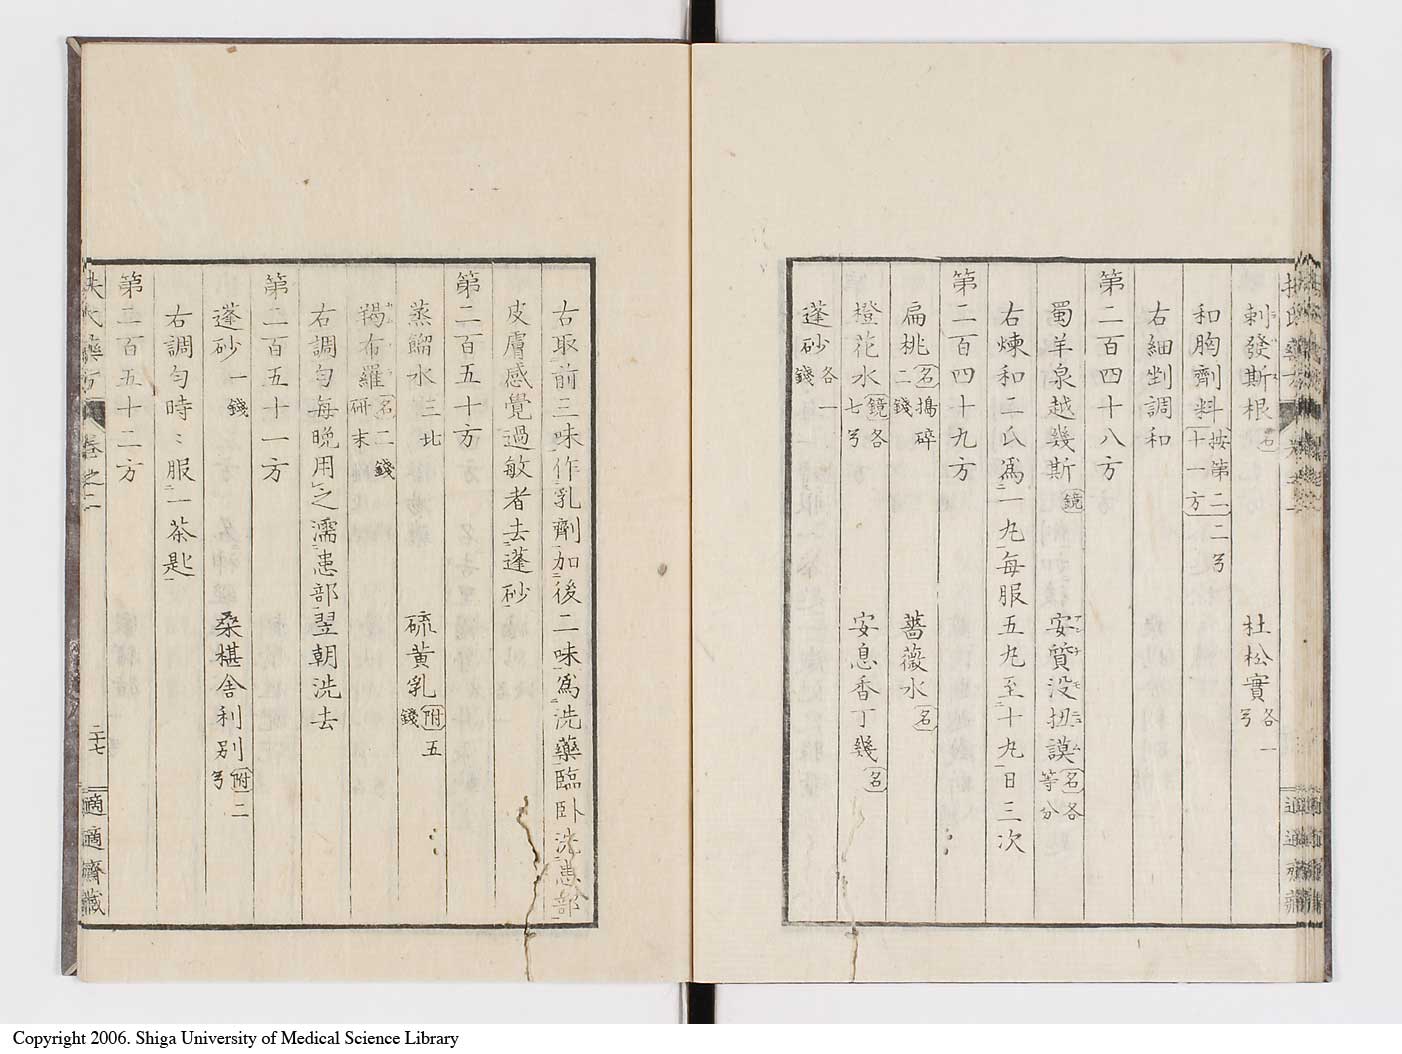 剌發斯根 名 杜松實 各一弓
和胸劑料 按第二十一方 二弓
右細剉調和
第二百四十八方
蜀羊泉越幾斯 鏡 安質没扭謨 名各等分
右煉和二氏為一丸每服五丸至十丸日三次
第二百四十九方
扁桃 名搗碎二錢 薔薇水 名
橙花水 鏡各七弓 安息香丁幾 名
蓬砂 各一錢
右取前三味作乳劑加後二味為洗藥臨卧洗患部
皮膚感覺過敏者去蓬砂
第二百五十方
蒸餾水 三比 硫黄乳 附五錢
羯布羅 名二錢研末
右調勻每晩用之濡患部翌朝洗去
第二百五十一方
蓬砂 一錢 桑椹舍利別 附二弓
右調勻時々服一茶匙
第二百五十二方
扶氏藥方 卷之二 二十七 適適齋藏
Copyright 2006. Shiga University of Medical Science Library